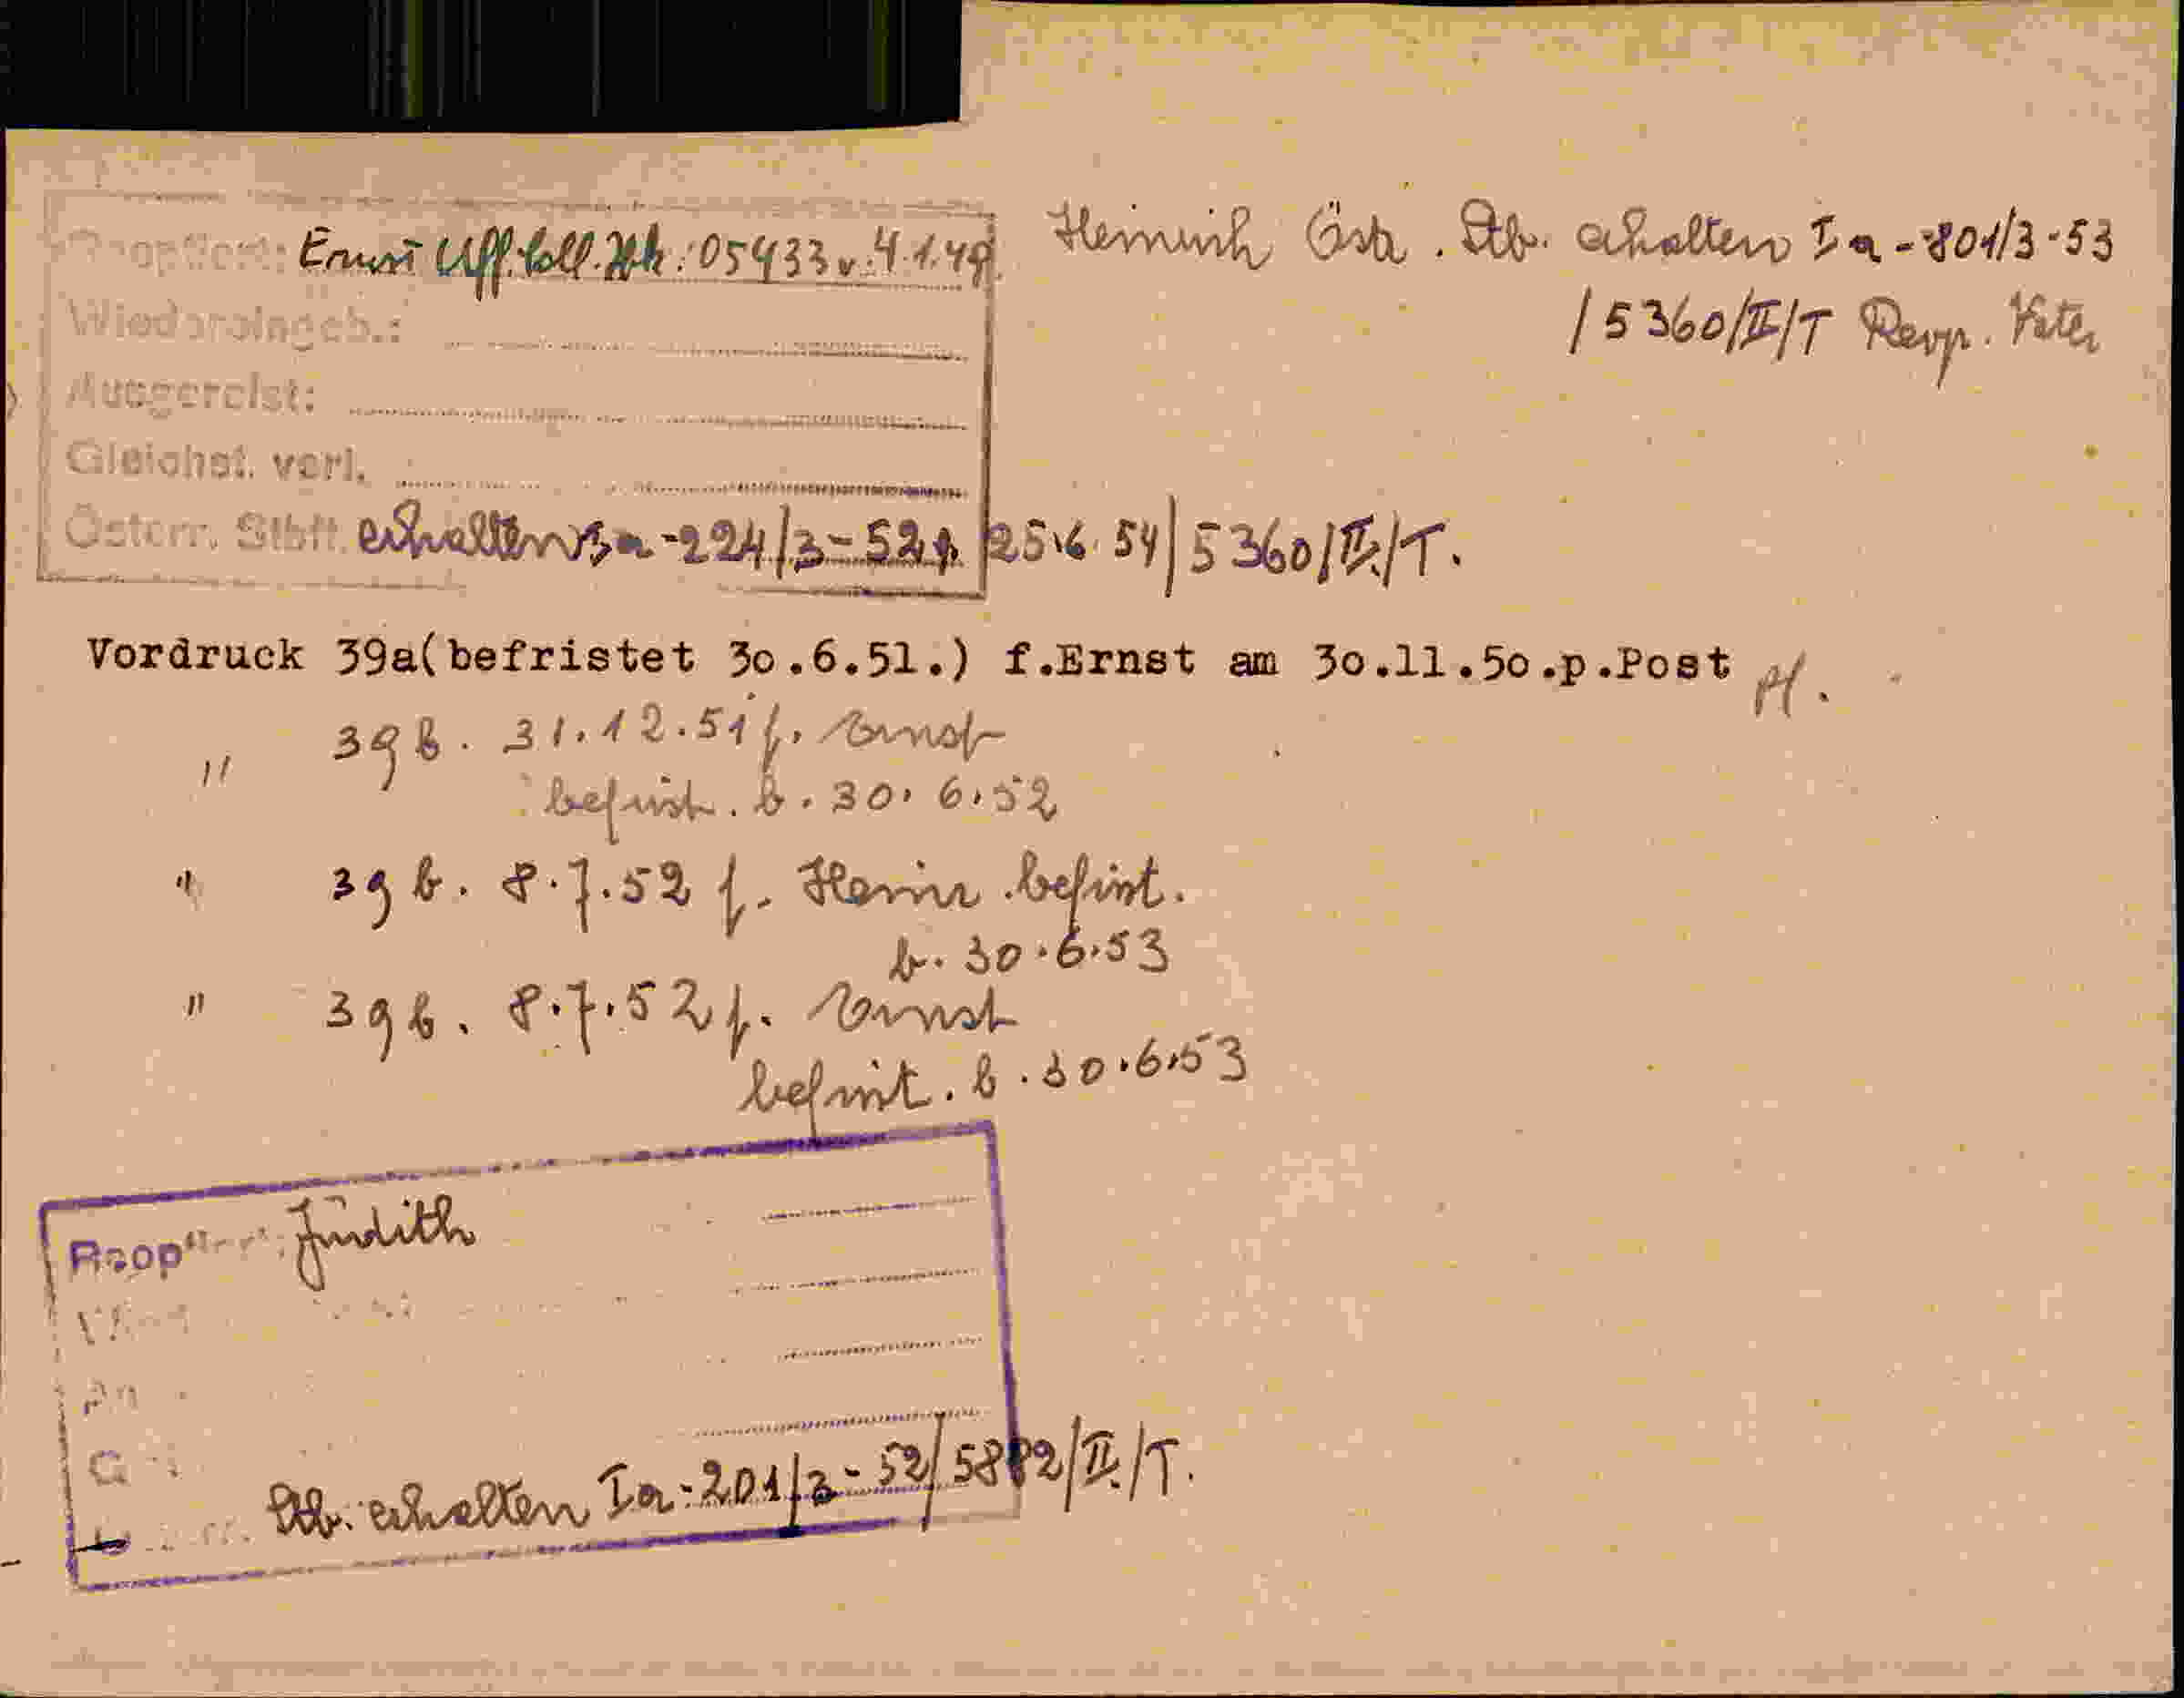 Reoptiert: Ernst Uff. Coll. Zk: 05433 v. 4.1.49.
Heinrich Östr. Stb. erhalten Ia-801/3-53
/5360/II/T Reop. Vater
Wiedereingeb.:
Ausgereist:
Gleichst. verl.
Österr. Stbft. erhalten Ia-224/3-52 25.6.54/5360/II./T.
Vordruck 39a(befristet 30.6.51.) f.Ernst am 30.11.50.p.Post
" 39b. 31.12.51 f. Ernst
befrist. b. 30.6.52
" 39b. 8.7.52 f. Heinr. befrist.
b. 30.6.53
" 39b. 8.7.52 f. Ernst
befrist. b. 30.6.53
Reoptiert: Judith
Stb. erhalten Ia-201/3-52/5882/II./T.